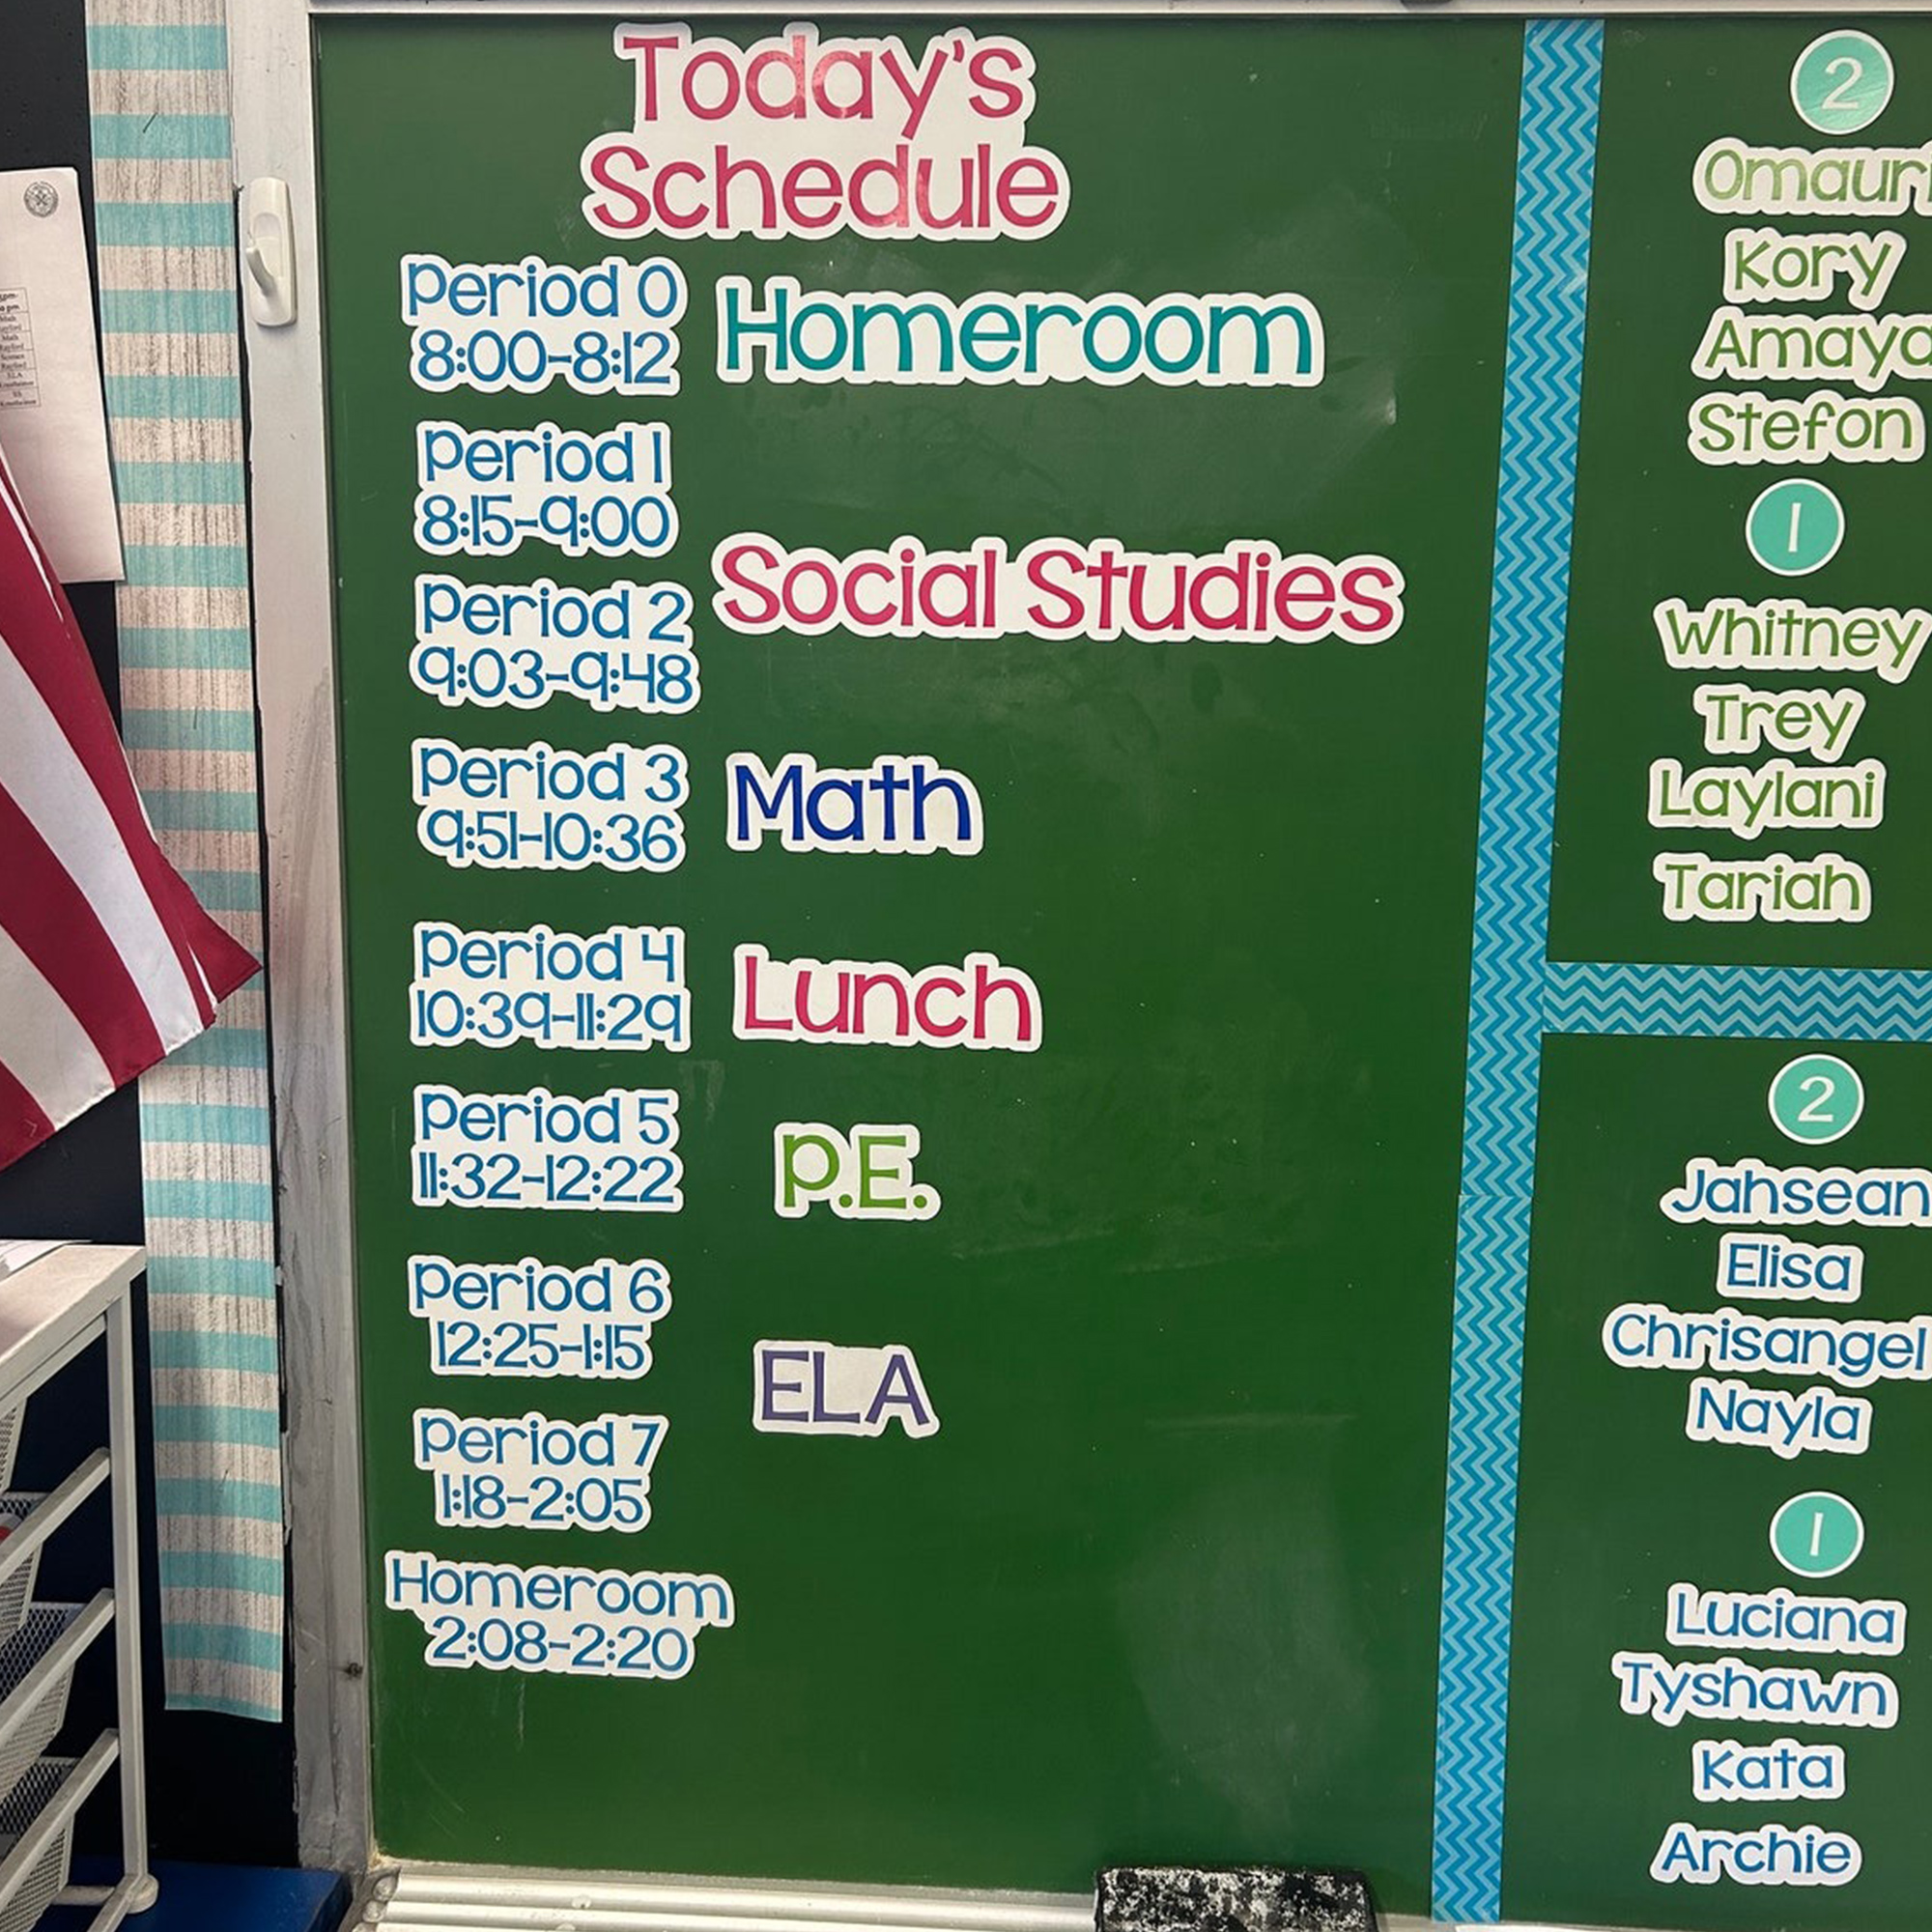 Today's
Schedule
Period 0
8:00-8:12
Homeroom
Period 1
8:15-9:00
Social Studies
Period 2
9:03-9:48
Period 3
9:51-10:36
Math
Period 4
10:39-11:29
Lunch
Period 5
11:32-12:22
P.E.
Period 6
12:25-1:15
ELA
Period 7
1:18-2:05
Homeroom
2:08-2:20
2
Omauri
Kory
Amaya
Stefon
1
Whitney
Trey
Laylani
Tariah
2
Jahsean
Elisa
Chrisangel
Nayla
1
Luciana
Tyshawn
Kata
Archie